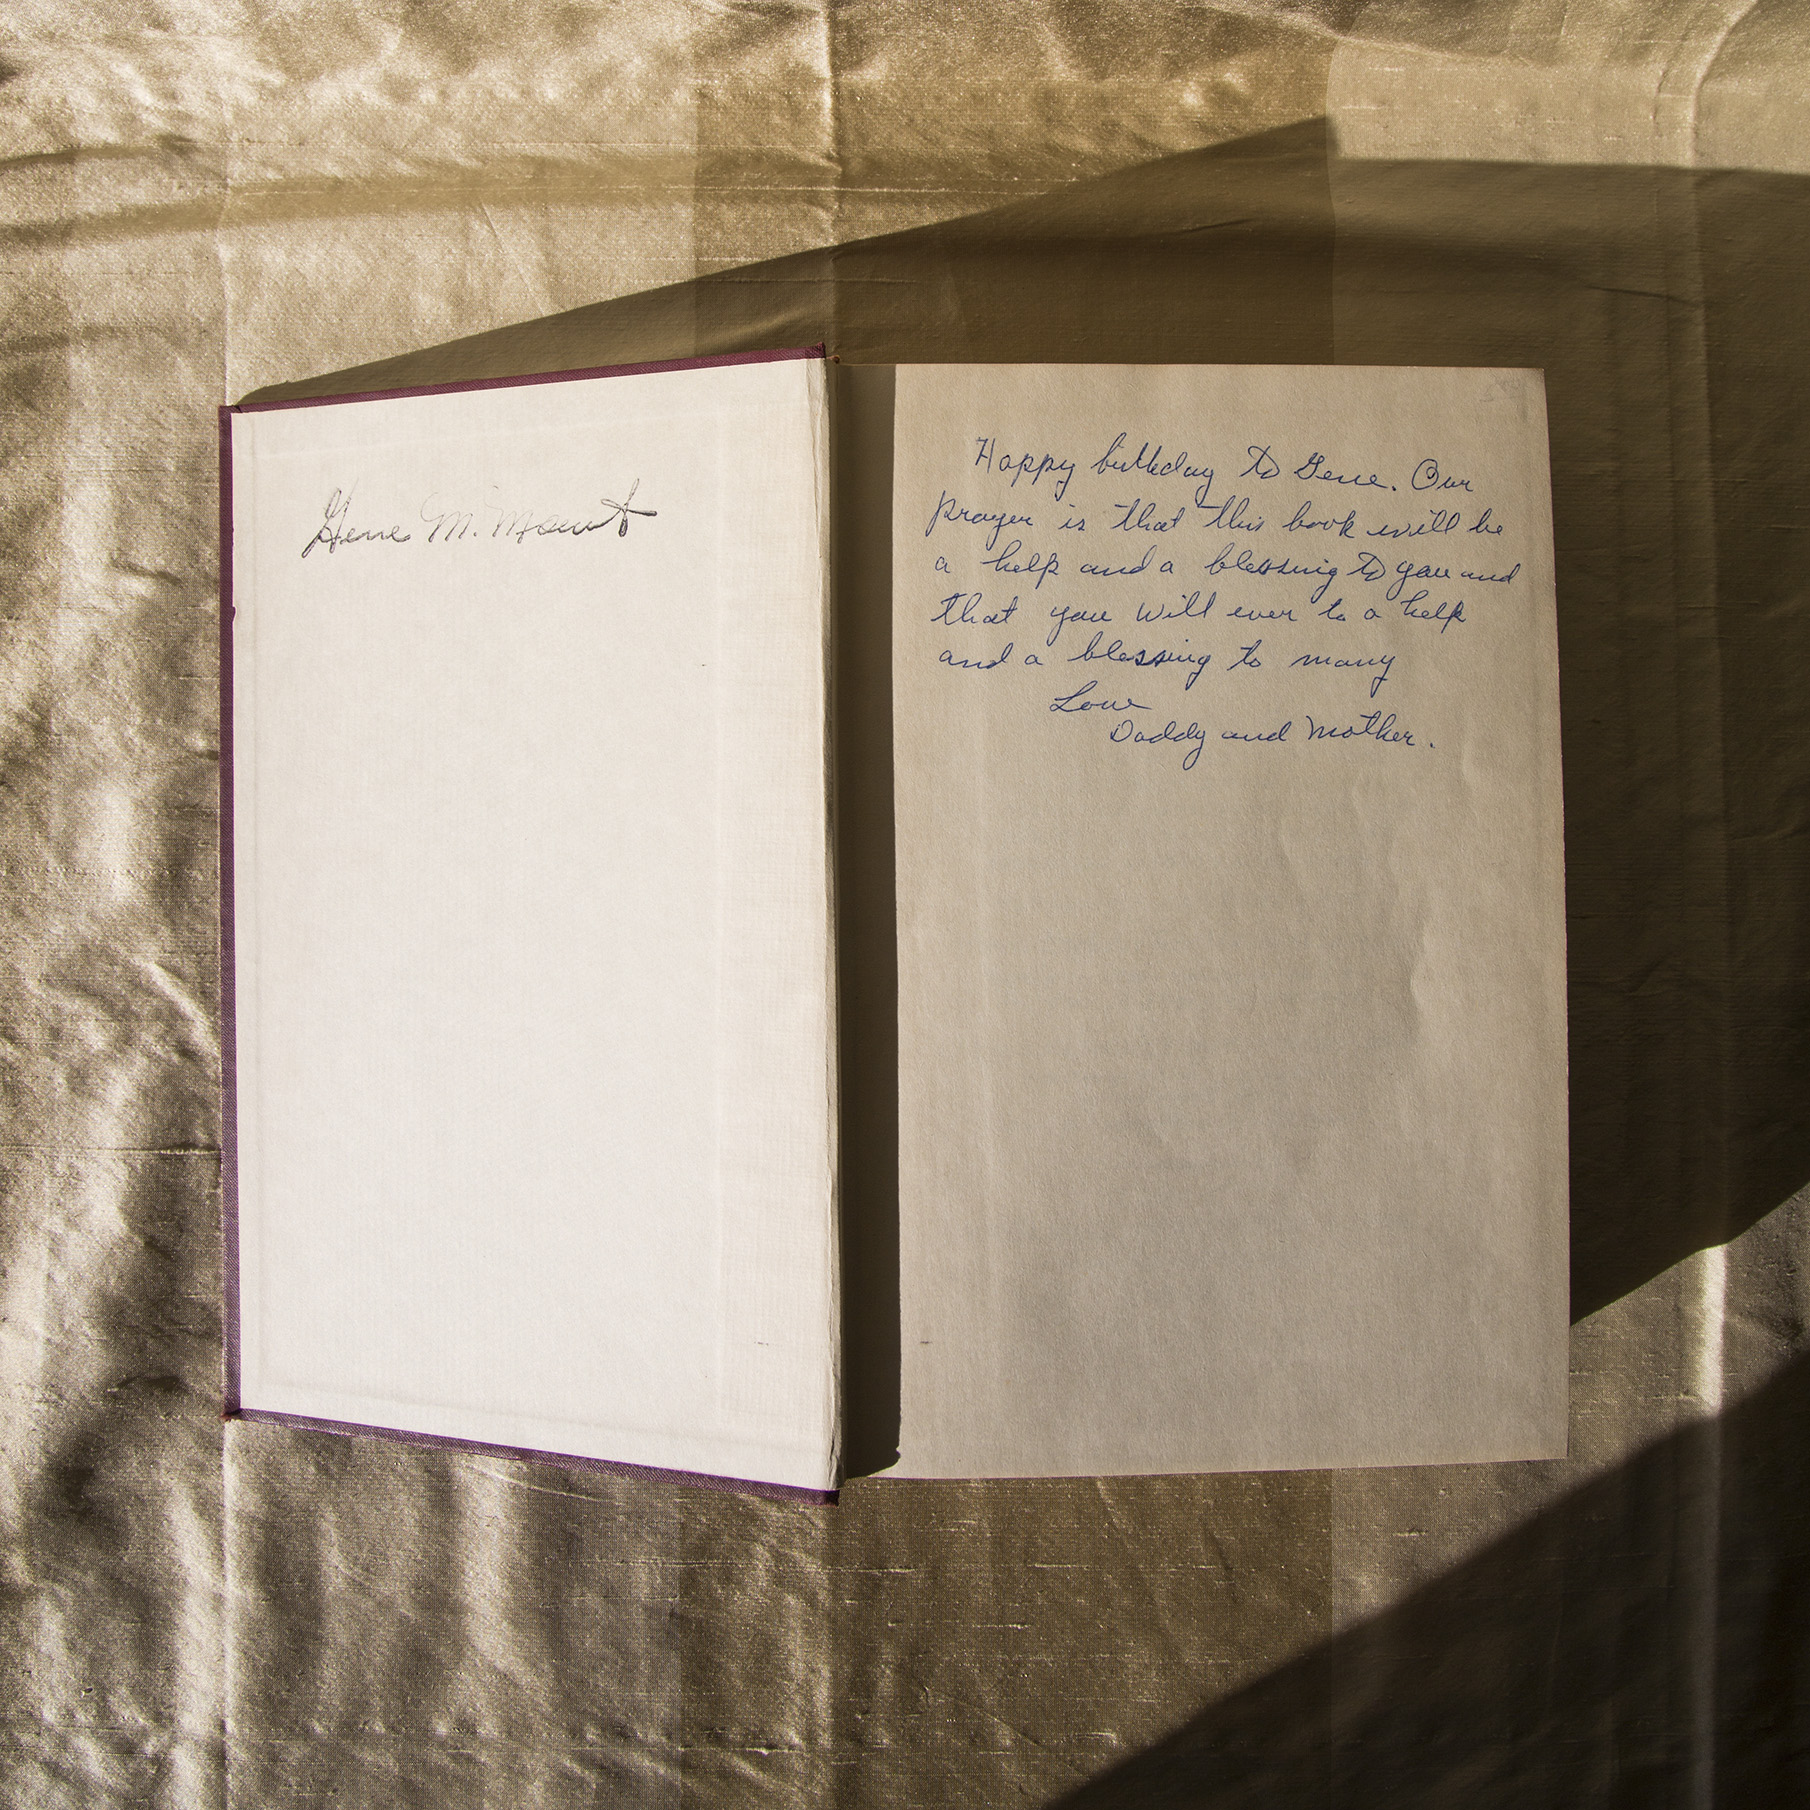 Gene M. Mount
Happy birthday to Gene. Our
prayer is that this book will be
a help and a blessing to you and
that you will ever to a help
and a blessing to many
Love
Daddy and Mother.